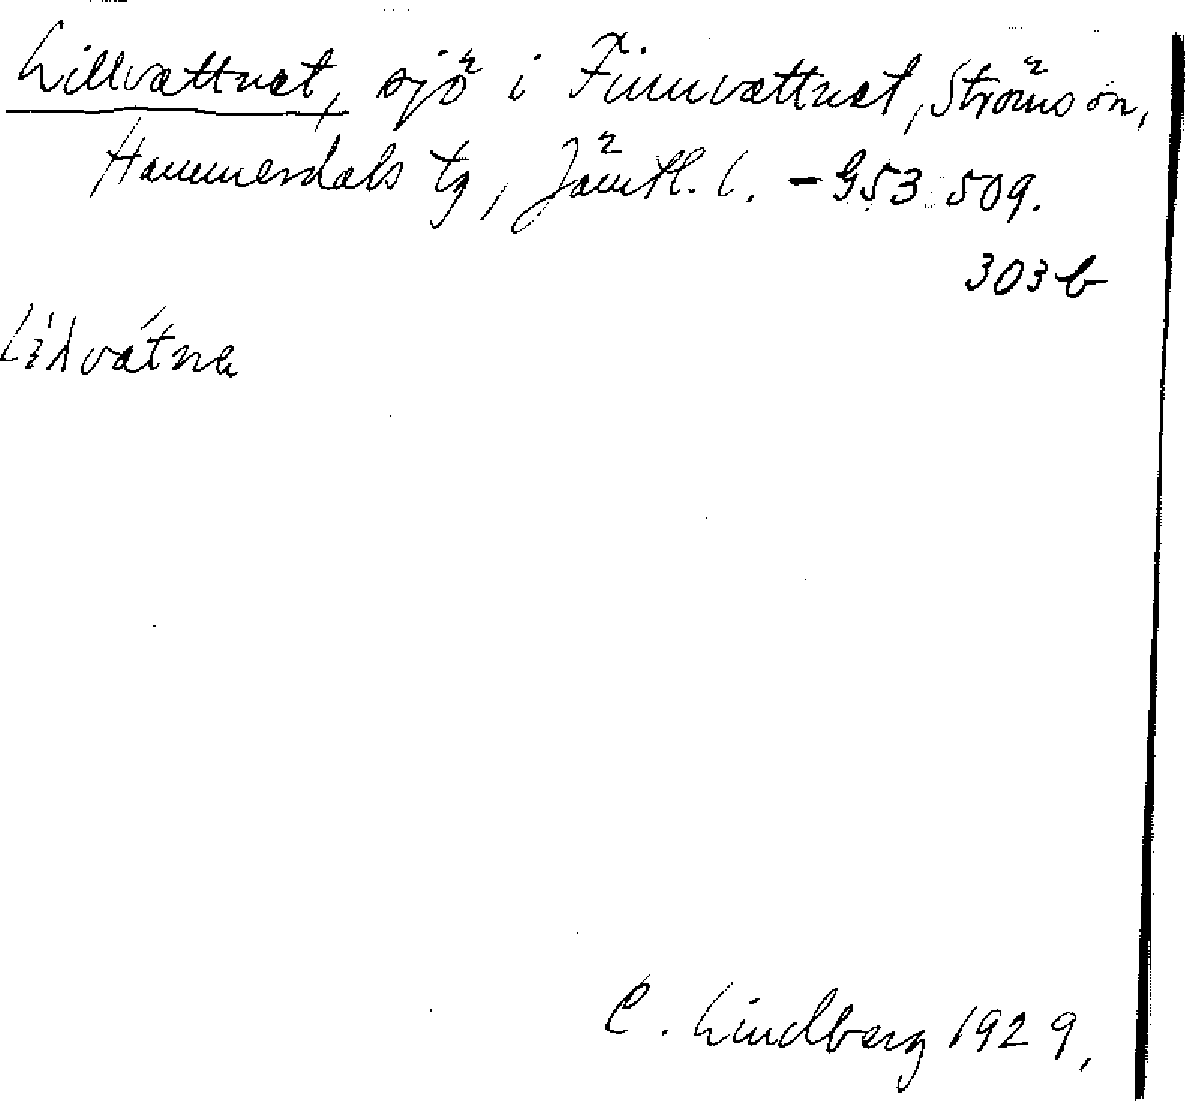 Lillvattnet, sjö i Finnvattnet, Ströms sn,
Hammerdals tg, Jämtl. l. - G53 509.
303 b
C. Lindberg 1929,